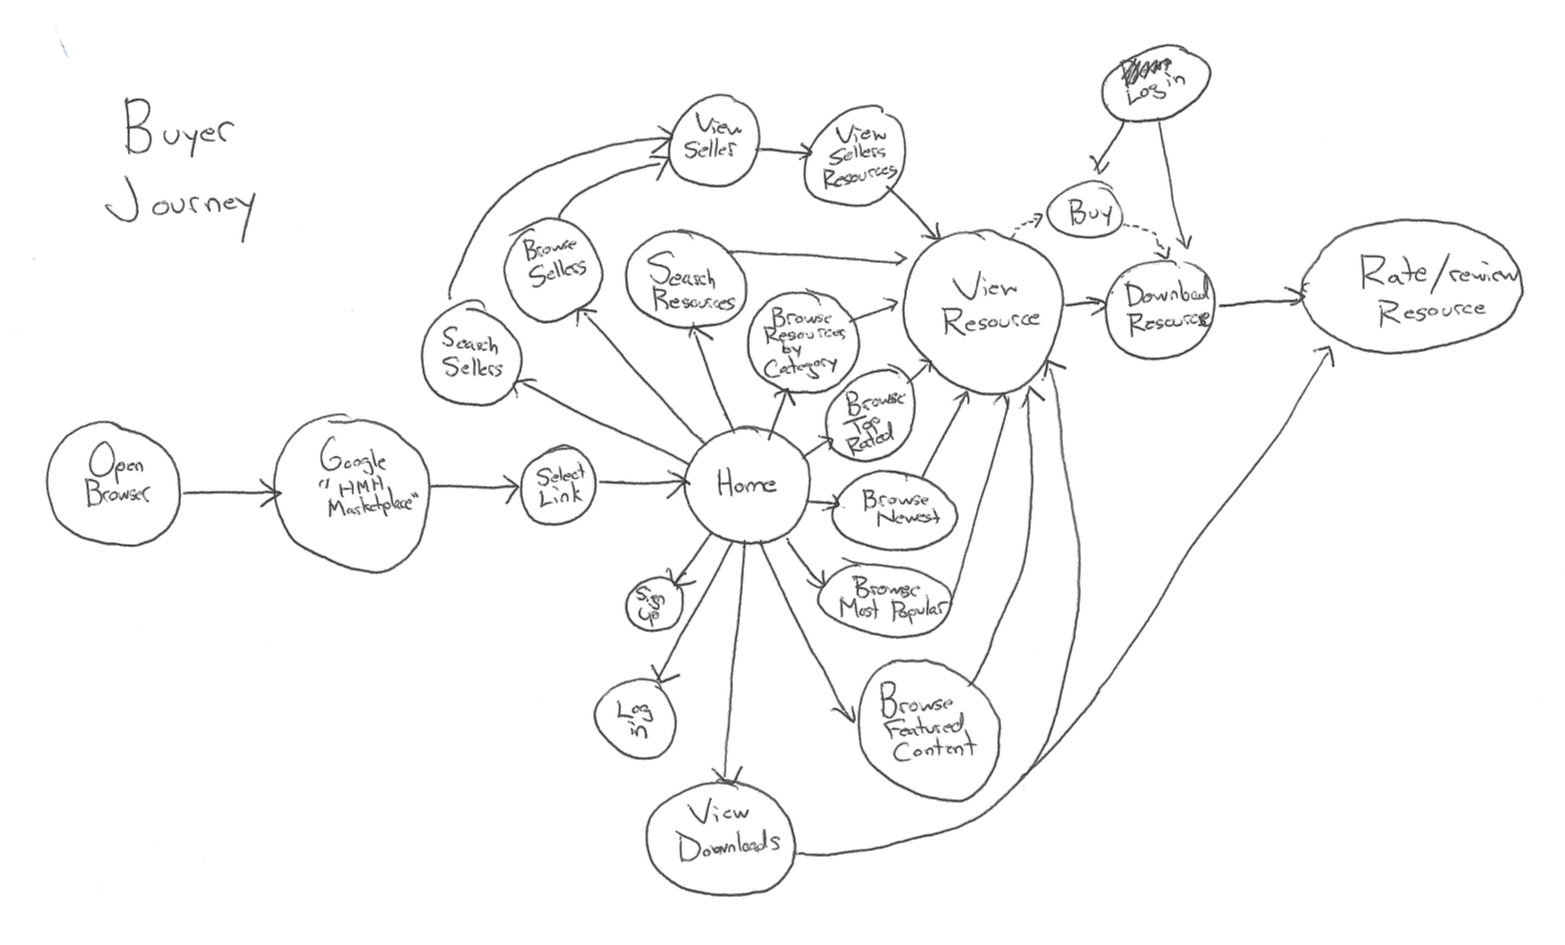 Buyer
Journey
Open
Browser
Google
"HMH
Marketplace"
Select
Link
Home
Search
Sellers
Browse
Sellers
View
Seller
View
Sellers
Resources
Search
Resources
Browse
Resources
by
Category
Browse
Top
Rated
Browse
Newest
Browse
Most Popular
Browse
Featured
Content
Sign
Up
Log
in
View
Downloads
View
Resource
Log in
Buy
Download
Resource
Rate/review
Resource